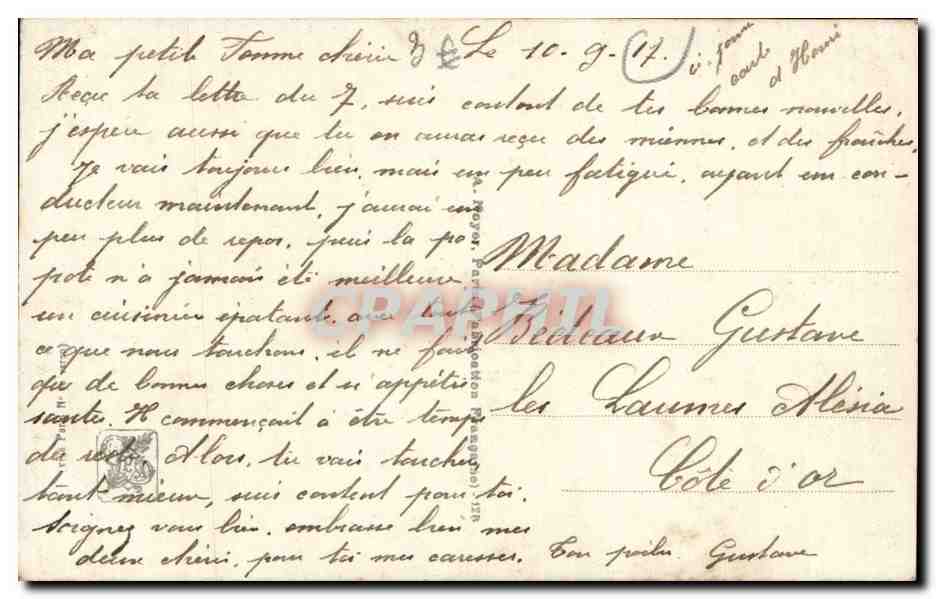 Ma petite Femme chérie Le 10-9-17.
ci joint
carte
d Henri
Reçu ta lettre du 7, suis content de tes bonnes nouvelles,
j'espère aussi que tu en auras reçu des miennes, et des fraîches.
Je vais toujours bien, mais un peu fatigué, ayant un con-
ducteur maintenant, j'aurai un
peu plus de repos, puis la po
pote n'a jamais été meilleure
un cuisinier épatant, avec tout
ce que nous touchons, il ne fait
que de bonnes choses et si appétis
santes. Il commençait à être temps
du reste. Alors, tu vais toucher
tant mieux, suis content pour toi.
Soignez vous bien, embrasse bien mes
deux chéris, pour toi mes caresses. Ton poilu Gustave
Madame
Bedeaux Gustave
les Laumes Alésia
Côte d'or
A. Noyer, Paris (Fabrication Française) 178
CPAPHIL